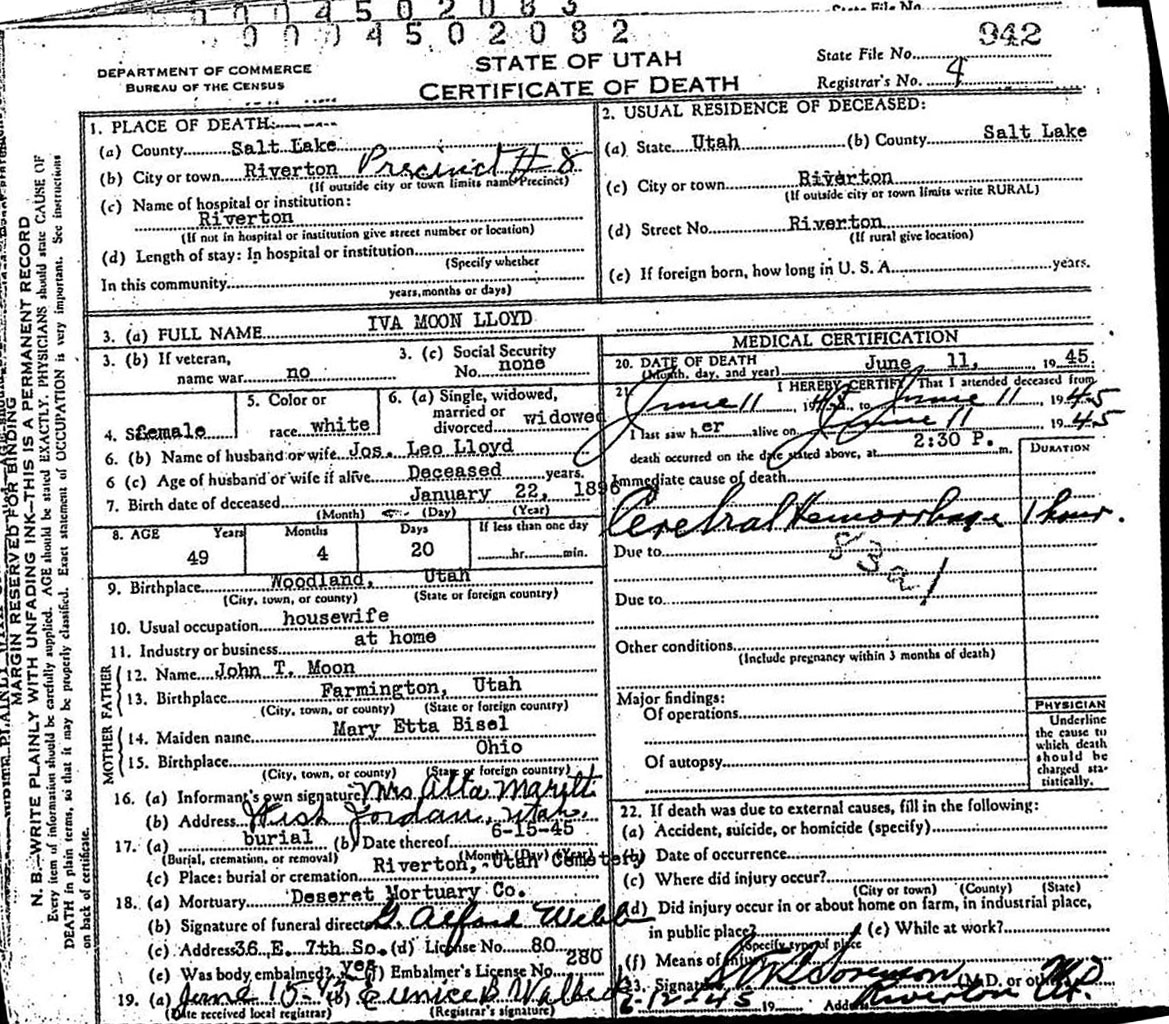 0 0 0 4 5 0 2 0 8 3
State File No.
0 0 0 4 5 0 2 0 8 2
942
DEPARTMENT OF COMMERCE
BUREAU OF THE CENSUS
STATE OF UTAH
CERTIFICATE OF DEATH
State File No.
Registrar's No. 4
MARGIN RESERVED FOR BINDING
N. B.—WRITE PLAINLY WITH UNFADING INK—THIS IS A PERMANENT RECORD
Every item of information should be carefully supplied. AGE should be stated EXACTLY. PHYSICIANS should state CAUSE OF
DEATH in plain terms, so that it may be properly classified. Exact statement of OCCUPATION is very important. See instructions
on back of certificate.
1. PLACE OF DEATH:
(a) County Salt Lake
(b) City or town Riverton Precinct # 8
(If outside city or town limits name Precinct)
(c) Name of hospital or institution:
Riverton
(If not in hospital or institution give street number or location)
(d) Length of stay: In hospital or institution
(Specify whether
In this community
years, months or days)
2. USUAL RESIDENCE OF DECEASED:
(a) State Utah (b) County Salt Lake
(c) City or town Riverton
(If outside city or town limits write RURAL)
(d) Street No. Riverton
(If rural give location)
(e) If foreign born, how long in U. S. A. years.
3. (a) FULL NAME IVA MOON LLOYD
3. (b) If veteran,
name war no
3. (c) Social Security
No. none
4. Sex female
5. Color or
race white
6. (a) Single, widowed,
married or
divorced widowed
6. (b) Name of husband or wife Jos. Leo Lloyd
6 (c) Age of husband or wife if alive Deceased years.
7. Birth date of deceased January 22, 1896
(Month) (Day) (Year)
8. AGE Years Months Days If less than one day
49 4 20 hr. min.
9. Birthplace Woodland, Utah
(City, town, or county) (State or foreign country)
10. Usual occupation housewife
11. Industry or business at home
FATHER
12. Name John T. Moon
13. Birthplace Farmington, Utah
(City, town, or county) (State or foreign country)
MOTHER
14. Maiden name Mary Etta Bisel
15. Birthplace Ohio
(City, town, or county) (State or foreign country)
16. (a) Informant's own signature Mrs Alta
(b) Address West Jordan, Utah.
17. (a) burial (b) Date thereof 6-15-45
(Burial, cremation, or removal) (Month) (Day) (Year)
(c) Place: burial or cremation Riverton, Utah Cemetery
18. (a) Mortuary Deseret Mortuary Co.
(b) Signature of funeral director G. Alford Webb
(c) Address 36 E. 7th So. (d) License No. 80
(e) Was body embalmed? yes (f) Embalmer's License No. 280
19. (a) June 15-45 (b) Eunice B
(Date received local registrar) (Registrar's signature)
MEDICAL CERTIFICATION
20. DATE OF DEATH June 11, 1945.
(Month, day, and year)
21. I HEREBY CERTIFY, That I attended deceased from
June 11, 1945, to June 11, 1945
I last saw her alive on June 11 1945
death occurred on the date stated above, at 2:30 P. m.
DURATION
Immediate cause of death
Cerebral Hemorrhage 1 hour.
Due to
Due to
Other conditions
(Include pregnancy within 3 months of death)
Major findings:
Of operations
Of autopsy
PHYSICIAN
Underline
the cause to
which death
should be
charged sta-
tistically.
22. If death was due to external causes, fill in the following:
(a) Accident, suicide, or homicide (specify)
(b) Date of occurrence
(c) Where did injury occur?
(City or town) (County) (State)
(d) Did injury occur in or about home on farm, in industrial place,
in public place? (e) While at work?
(Specify type of place
(f) Means of injury
23. Signature Sorenson (M.D. or other) M.D
6-12-45 19 Address Riverton Ut.